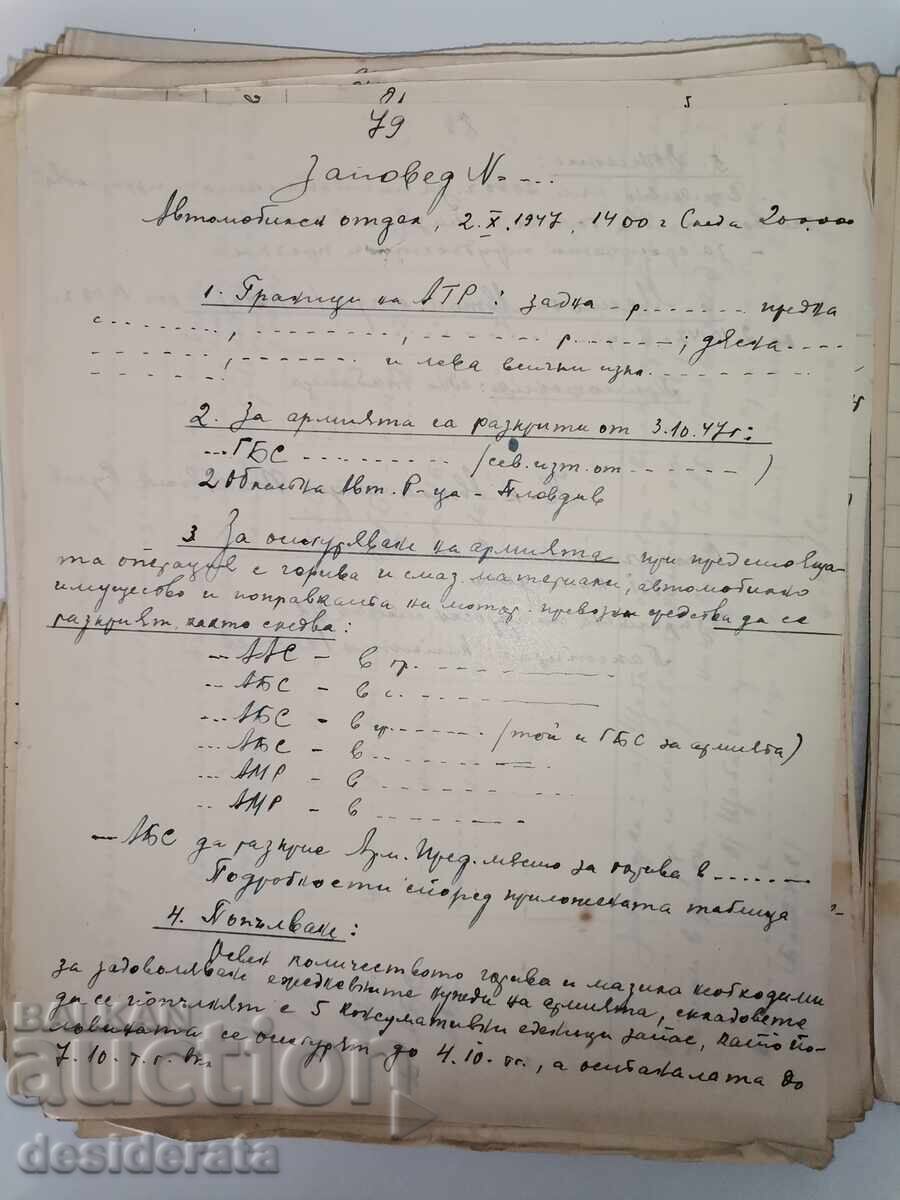 79
Заповед №...
Автомобилен отдел, 2.X.1947, 1400 г Следа 200.000
1. Граници на АТР: задна - р....... предна
с......., ......., ....... р.......; дясна....
......., ....... и лева всички изкл. .......
2. За армията са разкрити от 3.10.47г:
...ГБС ......... /сев.изт.от ......./
2 Областна Авт. Р-ца - Пловдив
3. За осигуряване на армията при предстояща-
та операция с горива и смаз. материали, автомобилно
имущество и поправката на мотор. превозни средства да се
разкрият както следва:
... ААС - в гр. .......
... АБС - в с. .......
... АБС - в гр. ....... /той и ГБС за армията/
... АБС - в .......
... АМР - в .......
... АМР - в .......
— АБС да разкрие Арм. Пред. място за горива в .......
Подробности според приложената таблица
4. Попълване:
Освен количеството горива и мазила необходими
за задоволяване ежедневните нужди на армията, складовете
да се попълнят с 5 консумативни единици запас, като по-
ловината се осигурят до 4.10. тг., а останалата до
7.10. т.г. вкл.
BALKAN
auction
desiderata